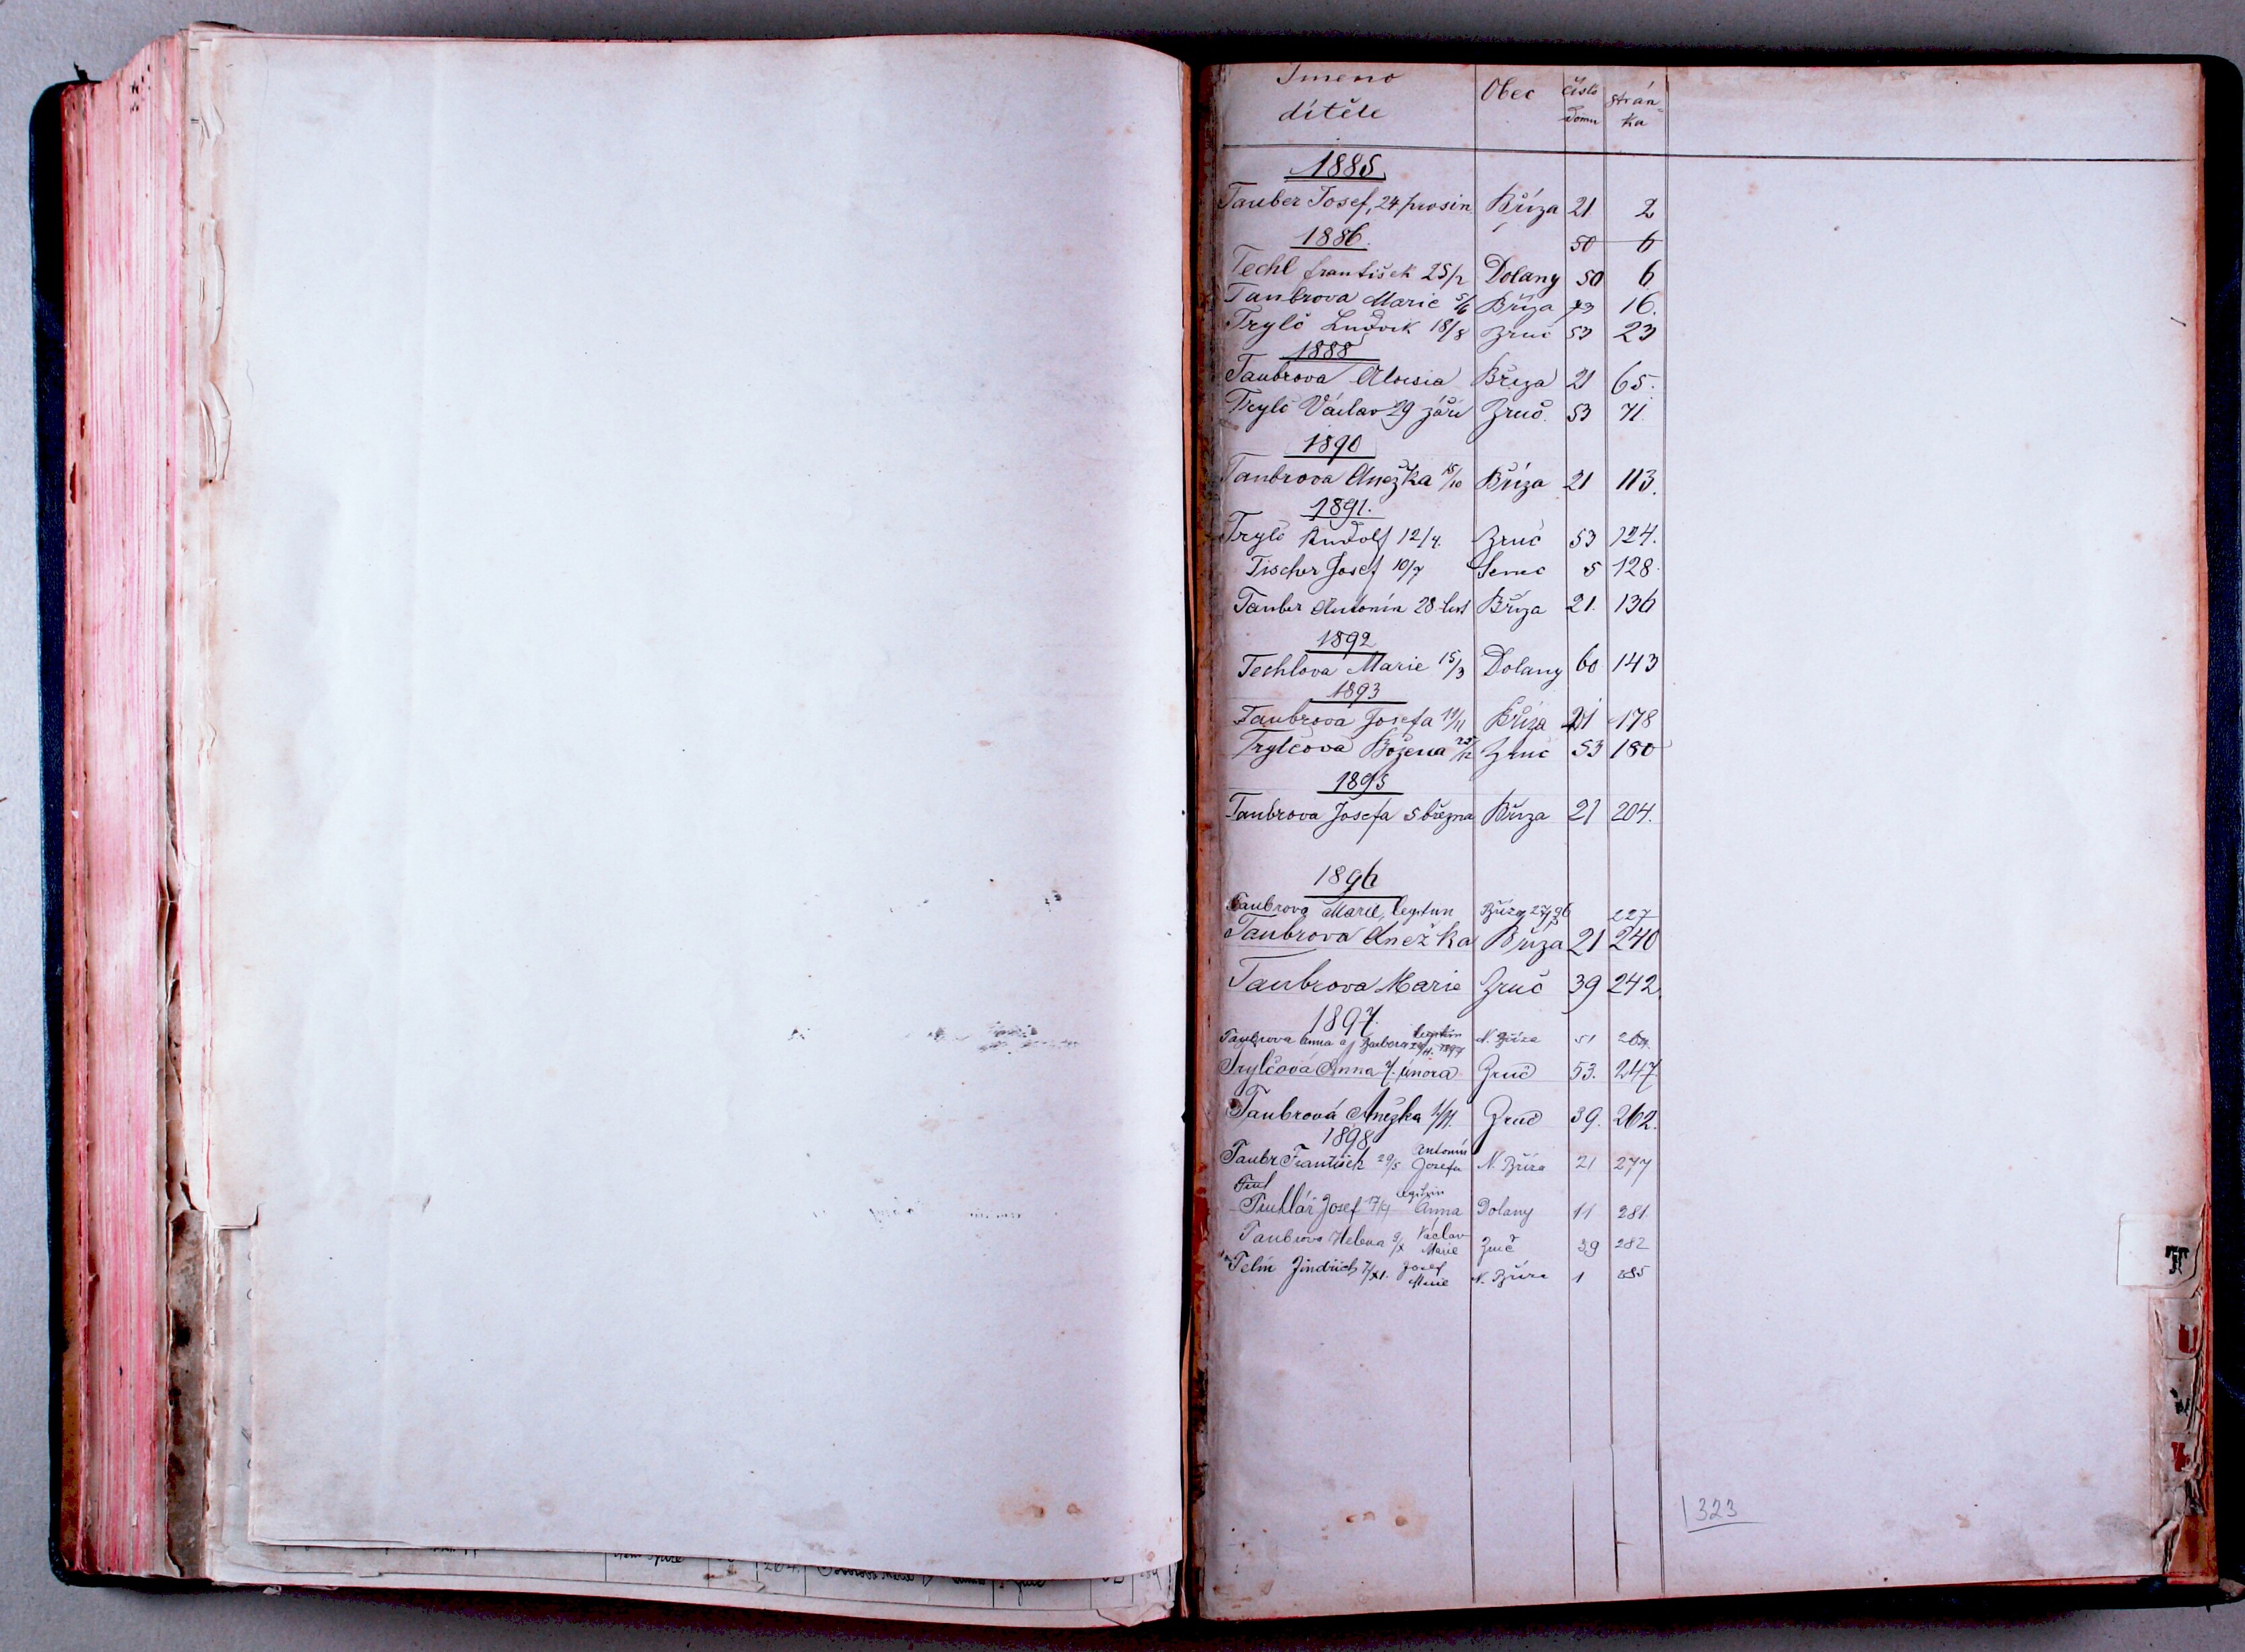 Jmeno dítěte Obec číslo domu stránka
1885
Tauber Josef, 24 prosin Bříza 21 2
1886. 50 6
Techl František 25/2 Dolany 50 6
Taubrova Marie 5/6 Bříza 73 16.
Trylč Ludvik 18/8 Zruč 53 23
1888
Taubrova Aloisia Bříza 21 65.
Trylč Václav 29 září Zruč. 53 71.
1890
Taubrova Anežka 15/10 Bříza 21 113.
1891.
Trylč Rudolf 12/4. Zruč 53 124.
Tischer Josef 10/7 Senec 5 128.
Tauber Antonín 28 list Bříza 21. 136
1892
Techlova Marie 15/3 Dolany 60 143
1893
Taubrova Josefa 11/11 Bříza 21 178
Trylčova Božena 25/12 Zruč 53 180
1895
Taubrova Josefa 5 března Bříza 21 204.
1896
Taubrova Marie, legitim Bříza 227
Taubrova Anežka Bříza 21 240
Taubrova Marie Zruč 39 242.
1897.
Taubrova Anna a Barbora legitim 1897 N. Bříza 51
Trylčová Anna 7. února Zruč 53. 247
Taubrová Anežka 1/11. Zruč 39. 262.
1898
Taubr František 29/5 Antonín Josefa N. Bříza 21 277
Trul
Trullář Josef 17/9 legitim Anna Dolany 11 281.
Taubrova Helena 9/X Václav Marie Zruč 39 282
Telín Jindřich 7/XI. Josef Marie N. Bříza 1 285
323
T
U
V